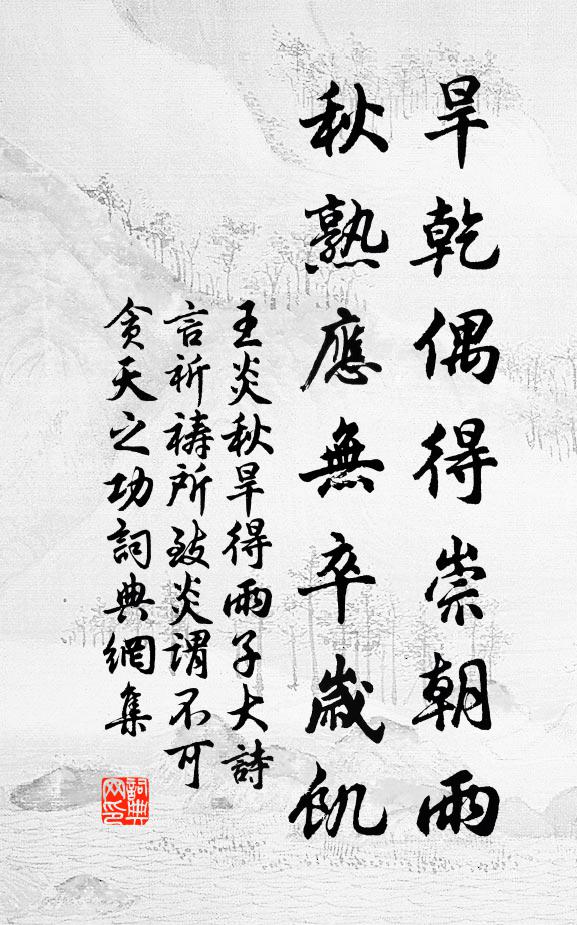 旱乾偶得崇朝雨
秋熟應無卒歲飢
王炎秋旱得雨子大詩
言祈禱所致炎謂不可
貪天之功詞典網集
詞典网印